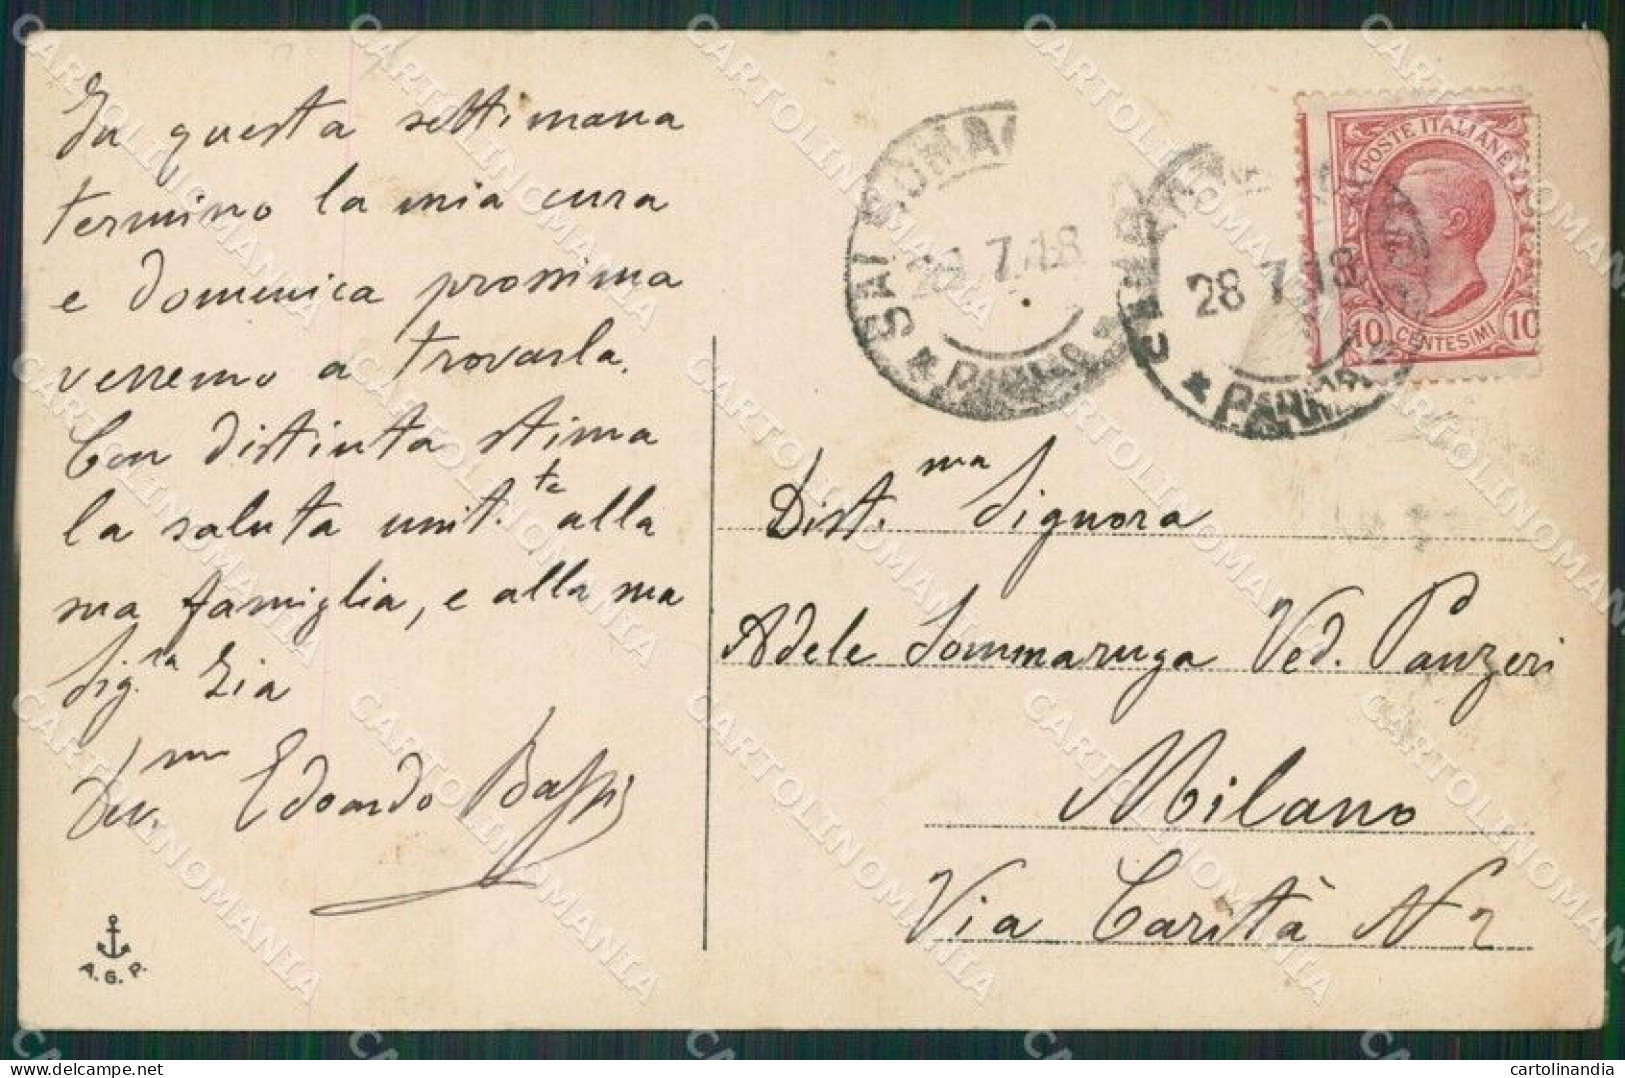 In questa settimana
termino la mia cura
e domenica prossima
verremo a trovarla.
Con distinta stima
la saluta unit.te alla
sua famiglia, e alla sua
Sig.ra Zia
Dev.mo Edoardo Bassi
A. G. P.
POSTE ITALIANE
10 CENTESIMI 10
28 7 18
28 7 18
PARMA
Dist.ma Signora
Adele Sommaruga Ved. Panzeri
Milano
Via Carità N 2
CARTOLINOMANIA
cartolinandia